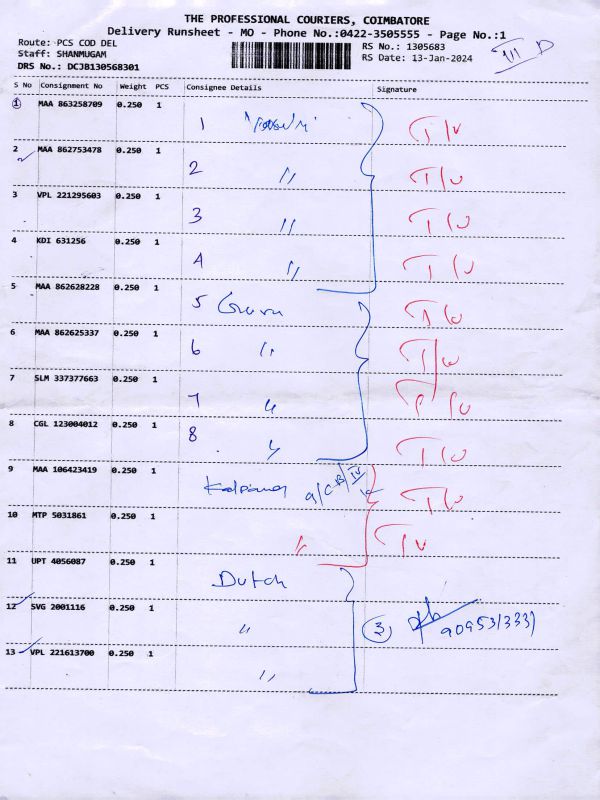 THE PROFESSIONAL COURIERS, COIMBATORE
Delivery Runsheet - MO - Phone No.:0422-3505555 - Page No.:1
Route: PCS COD DEL
RS No.: 1305683
Staff: SHANMUGAM
RS Date: 13-Jan-2024
DRS No.: DCJB130568301
S No Consignment No Weight PCS Consignee Details Signature
1 MAA 863258709 0.250 1 1
2 MAA 862753478 0.250 1 2 〃
3 VPL 221295603 0.250 1 3 〃
4 KDI 631256 0.250 1 4 〃
5 MAA 862628228 0.250 1 5 Guru
6 MAA 862625337 0.250 1 6 〃
7 SLM 337377663 0.250 1 7 〃
8 CGL 123004012 0.250 1 8 〃
9 MAA 106423419 0.250 1
10 MTP 5031861 0.250 1 〃
11 UPT 4056087 0.250 1 Dutch
12 SVG 2001116 0.250 1 〃 3
13 VPL 221613700 0.250 1 〃